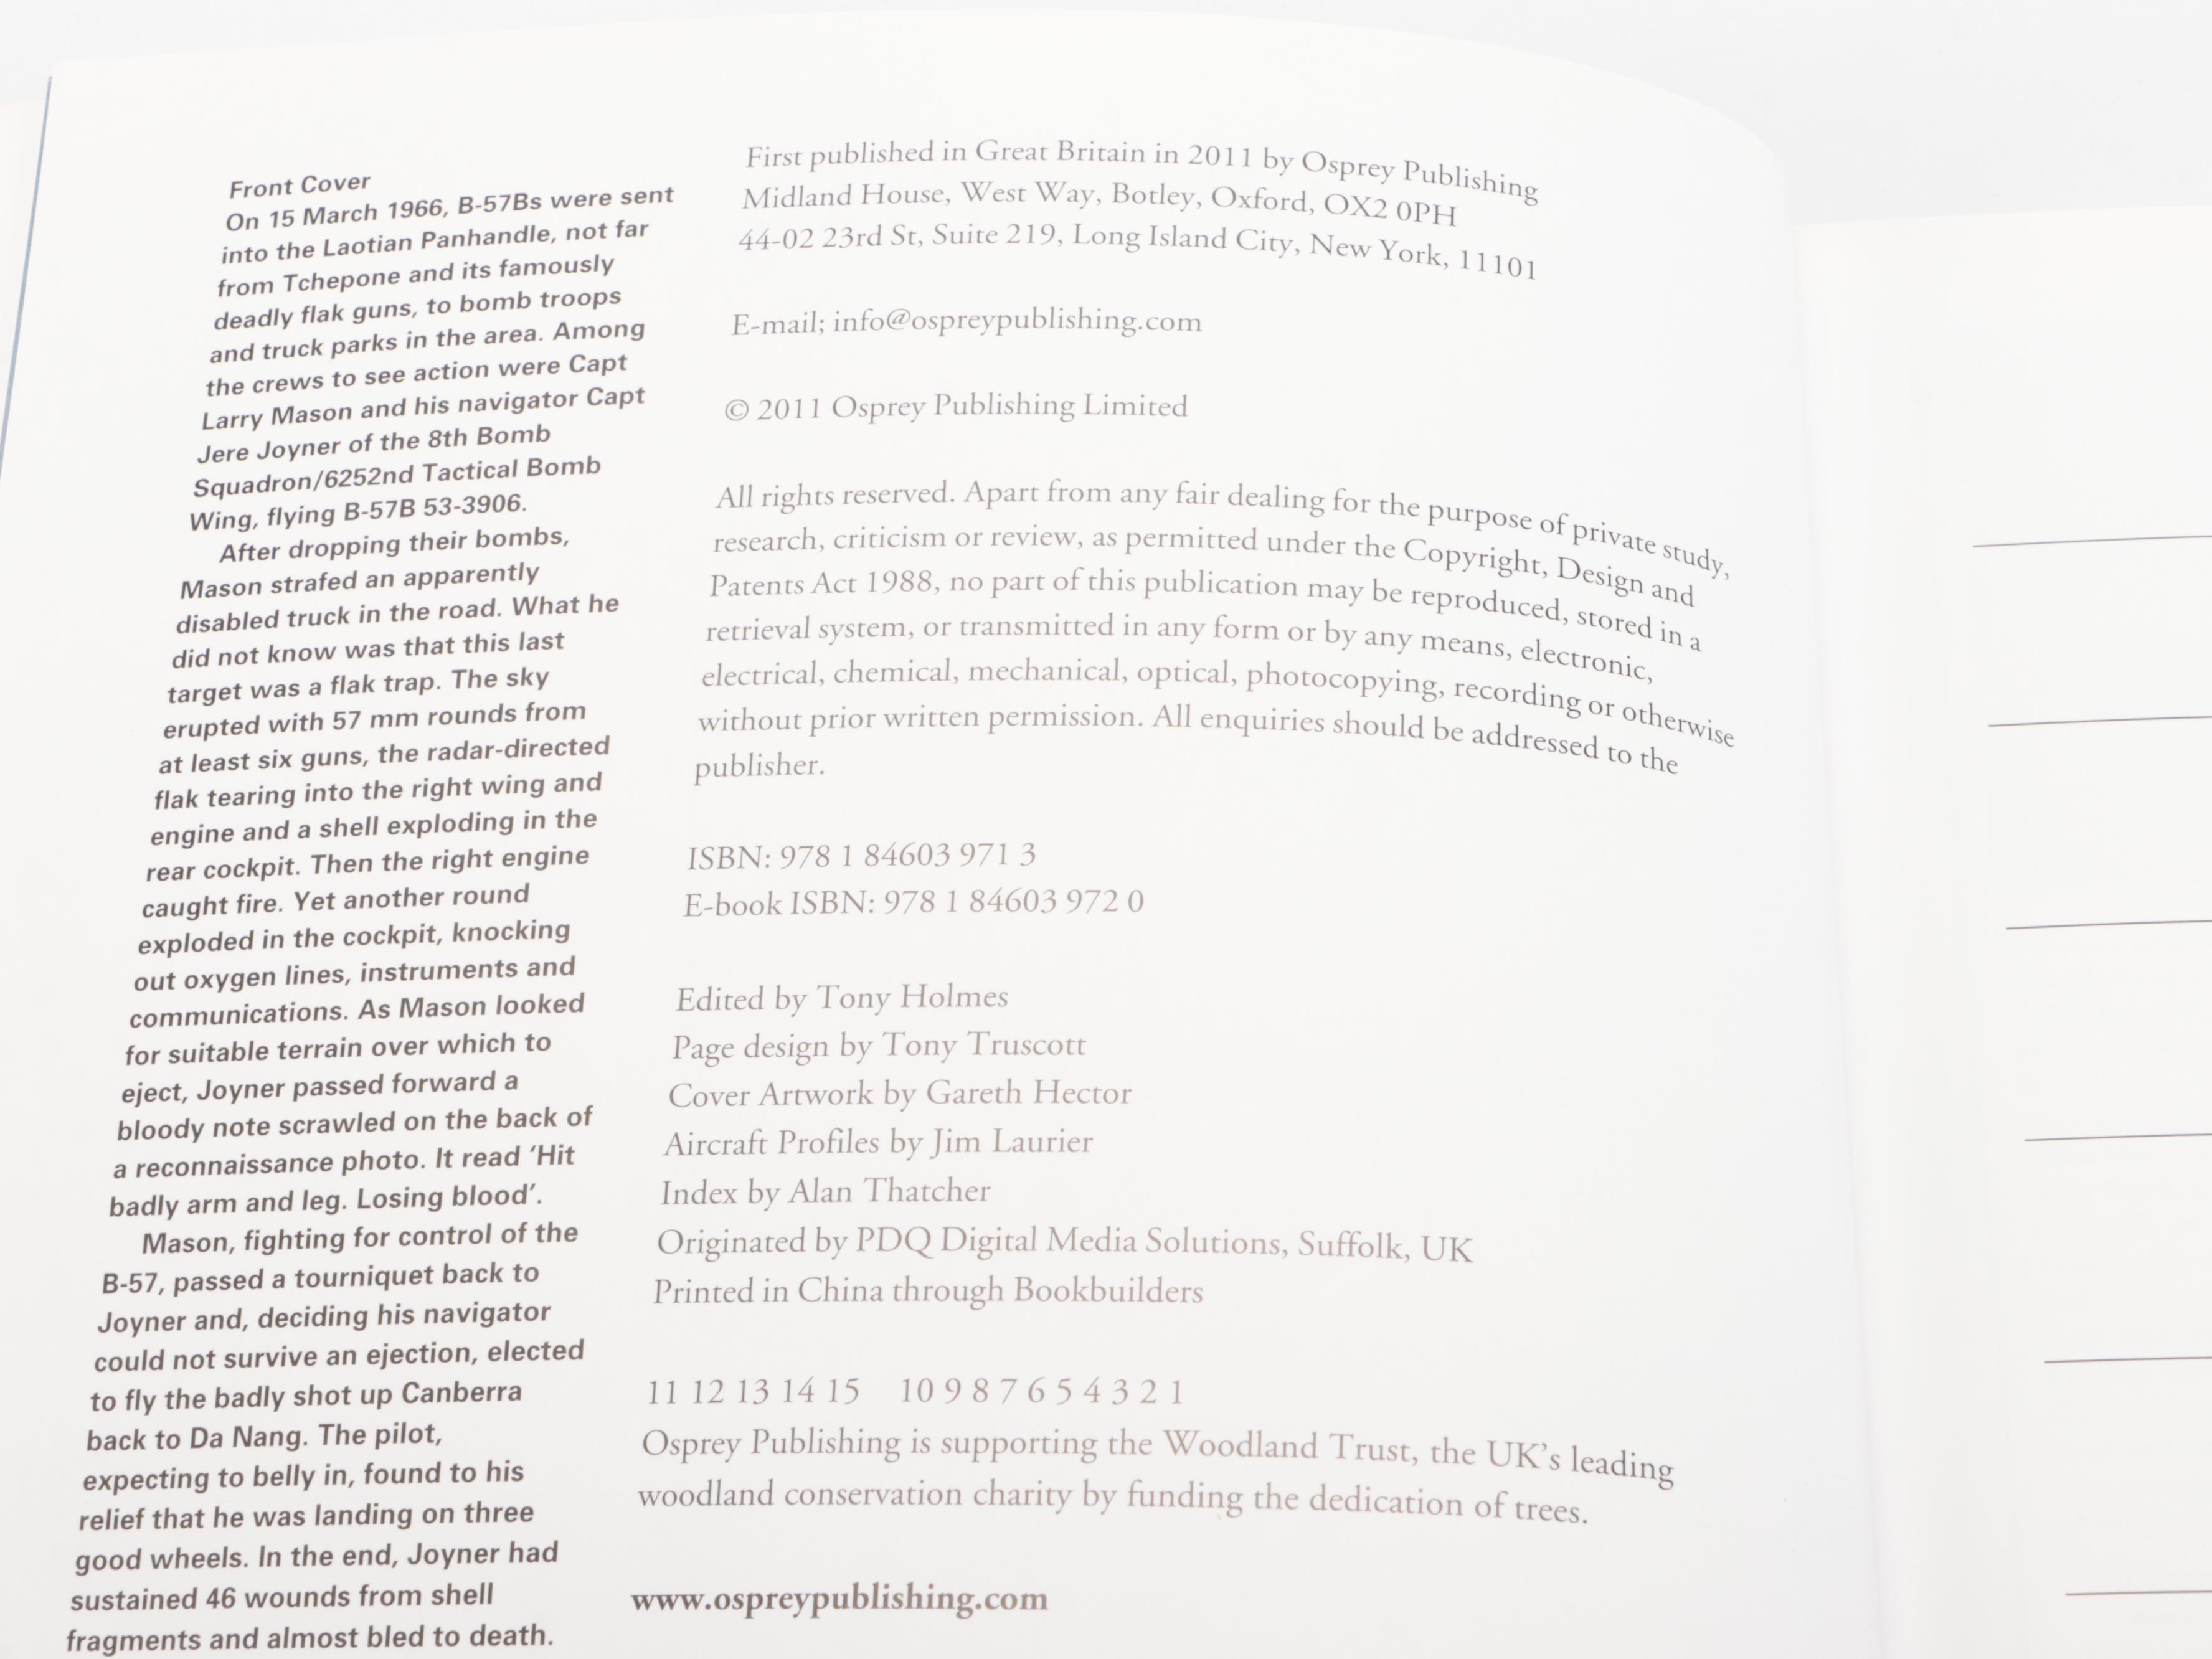 Front Cover
On 15 March 1966, B-57Bs were sent
into the Laotian Panhandle, not far
from Tchepone and its famously
deadly flak guns, to bomb troops
and truck parks in the area. Among
the crews to see action were Capt
Larry Mason and his navigator Capt
Jere Joyner of the 8th Bomb
Squadron/6252nd Tactical Bomb
Wing, flying B-57B 53-3906.
After dropping their bombs,
Mason strafed an apparently
disabled truck in the road. What he
did not know was that this last
target was a flak trap. The sky
erupted with 57 mm rounds from
at least six guns, the radar-directed
flak tearing into the right wing and
engine and a shell exploding in the
rear cockpit. Then the right engine
caught fire. Yet another round
exploded in the cockpit, knocking
out oxygen lines, instruments and
communications. As Mason looked
for suitable terrain over which to
eject, Joyner passed forward a
bloody note scrawled on the back of
a reconnaissance photo. It read ‘Hit
badly arm and leg. Losing blood’.
Mason, fighting for control of the
B-57, passed a tourniquet back to
Joyner and, deciding his navigator
could not survive an ejection, elected
to fly the badly shot up Canberra
back to Da Nang. The pilot,
expecting to belly in, found to his
relief that he was landing on three
good wheels. In the end, Joyner had
sustained 46 wounds from shell
fragments and almost bled to death.
First published in Great Britain in 2011 by Osprey Publishing
Midland House, West Way, Botley, Oxford, OX2 0PH
44-02 23rd St, Suite 219, Long Island City, New York, 11101
E-mail; info@ospreypublishing.com
© 2011 Osprey Publishing Limited
All rights reserved. Apart from any fair dealing for the purpose of private study,
research, criticism or review, as permitted under the Copyright, Design and
Patents Act 1988, no part of this publication may be reproduced, stored in a
retrieval system, or transmitted in any form or by any means, electronic,
electrical, chemical, mechanical, optical, photocopying, recording or otherwise
without prior written permission. All enquiries should be addressed to the
publisher.
ISBN: 978 1 84603 971 3
E-book ISBN: 978 1 84603 972 0
Edited by Tony Holmes
Page design by Tony Truscott
Cover Artwork by Gareth Hector
Aircraft Profiles by Jim Laurier
Index by Alan Thatcher
Originated by PDQ Digital Media Solutions, Suffolk, UK
Printed in China through Bookbuilders
11 12 13 14 15 10 9 8 7 6 5 4 3 2 1
Osprey Publishing is supporting the Woodland Trust, the UK’s leading
woodland conservation charity by funding the dedication of trees.
www.ospreypublishing.com